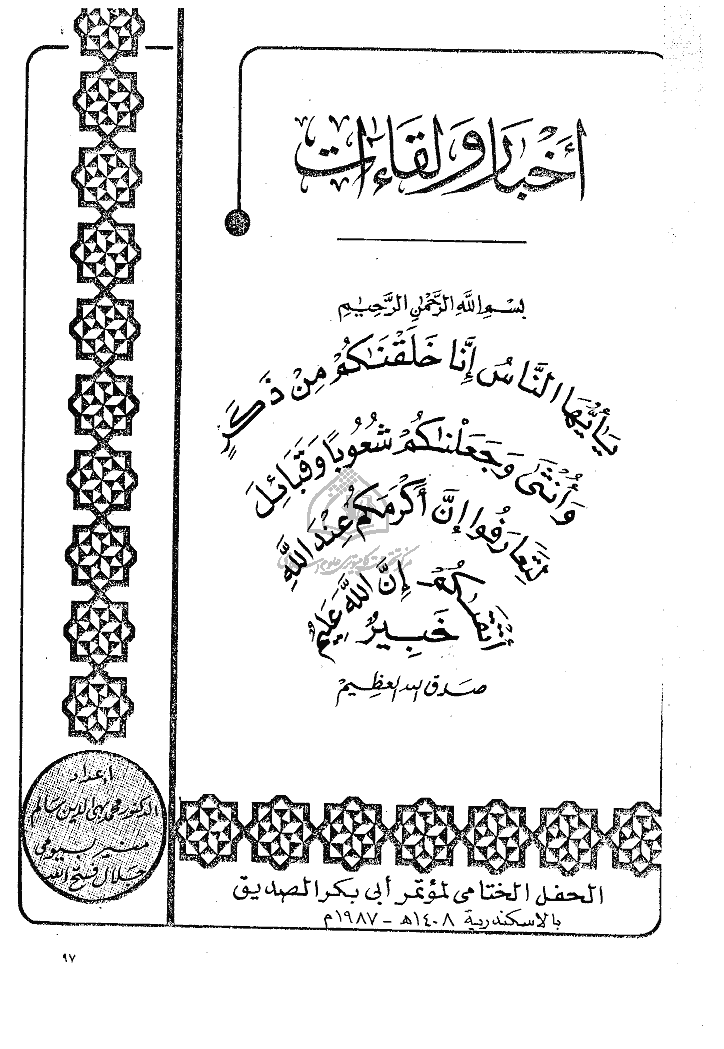 أخبار ولقاءات
بسم الله الرَّحْمٰنِ الرَّحِيمِ
يَٰأَيُّهَا النَّاسُ إِنَّا خَلَقْنَٰكُمْ مِنْ ذَكَرٍ
وَأُنْثَىٰ وَجَعَلْنَٰكُمْ شُعُوبًا وَقَبَائِلَ
لِتَعَارَفُوا إِنَّ أَكْرَمَكُمْ عِنْدَ اللَّهِ
أَتْقَىٰكُمْ إِنَّ اللَّهَ عَلِيمٌ
خَبِيرٌ
صدق الله العظيم
إعداد
الدكتور محيى الدين سالم
سمير بيومى
جلال فتح الله
الحفل الختامى لمؤتمر أبى بكر الصديق
بالاسكندرية ١٤٠٨هـ - ١٩٨٧م
٩٧